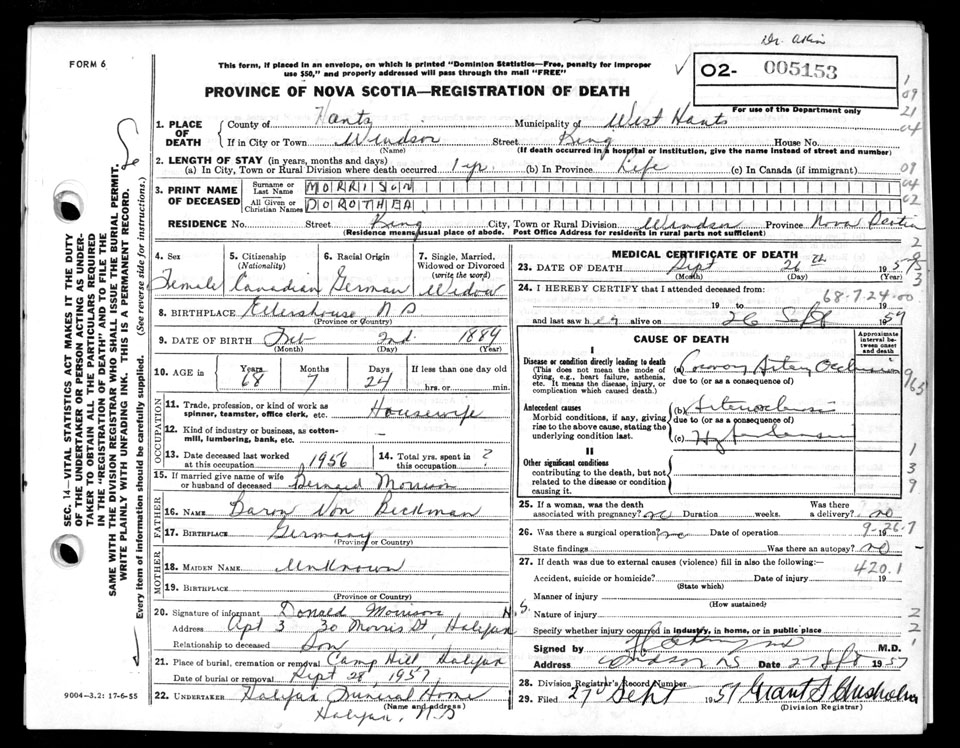 Dr. Atkin
FORM 6
This form, if placed in an envelope, on which is printed "Dominion Statistics—Free, penalty for improper
use $50," and properly addressed will pass through the mail "FREE"
✓ 02- 005153
PROVINCE OF NOVA SCOTIA—REGISTRATION OF DEATH
For use of the Department only
1. PLACE OF DEATH County of Hants Municipality of West Hants
If in City or Town Windsor Street King House No.
(Name) (If death occurred in a hospital or institution, give the name instead of street and number)
2. LENGTH OF STAY (in years, months and days)
(a) In City, Town or Rural Division where death occurred 1 yr. (b) In Province Life (c) In Canada (if immigrant)
3. PRINT NAME OF DECEASED Surname or Last Name MORRISON
All Given or Christian Names DOROTHEA
RESIDENCE No. Street King City, Town or Rural Division Windsor Province Nova Scotia
(Residence means usual place of abode. Post Office Address for residents in rural parts not sufficient)
4. Sex 5. Citizenship (Nationality) 6. Racial Origin 7. Single, Married, Widowed or Divorced (write the word)
Female Canadian German Widow
8. BIRTHPLACE Ellershouse N S
(Province or Country)
9. DATE OF BIRTH Feb 2nd. 1889
(Month) (Day) (Year)
10. AGE in Years Months Days If less than one day old
68 7 24 hrs. or min.
OCCUPATION
11. Trade, profession, or kind of work as spinner, teamster, office clerk, etc. Housewife
12. Kind of industry or business, as cotton-mill, lumbering, bank, etc. —
13. Date deceased last worked at this occupation 1956 14. Total yrs. spent in this occupation ?
15. If married give name of wife or husband of deceased Bernard Morrison
FATHER
16. NAME Baron Von Beckman
17. BIRTHPLACE Germany
(Province or Country)
MOTHER
18. MAIDEN NAME Unknown
19. BIRTHPLACE
(Province or Country)
20. Signature of informant Donald Morrison
Address Apt 3 30 Morris St, Halifax N.S.
Relationship to deceased Son
21. Place of burial, cremation or removal Camp Hill Halifax
Date of burial or removal Sept 28, 1957
22. UNDERTAKER Halifax Funeral Home
(Name and address)
Halifax, N.S
MEDICAL CERTIFICATE OF DEATH
23. DATE OF DEATH Sept 26th 1957
(Month) (Day) (Year)
24. I HEREBY CERTIFY that I attended deceased from:
68-7-24-00
19 to 19
and last saw her alive on 26 Sept 1957
CAUSE OF DEATH
Approximate interval between onset and death
I
Disease or condition directly leading to death
(This does not mean the mode of dying, e.g., heart failure, asthenia, etc. It means the disease, injury, or complication which caused death.)
(a) Coronary Artery Occlusion
due to (or as a consequence of)
Antecedent causes
Morbid conditions, if any, giving rise to the above cause, stating the underlying condition last.
(b)
due to (or as a consequence of)
(c) Hypertension
II
Other significant conditions
contributing to the death, but not related to the disease or condition causing it.
25. If a woman, was the death associated with pregnancy? no Duration weeks. Was there a delivery? no
9-26-7
26. Was there a surgical operation? no Date of operation 19
State findings Was there an autopsy? no
27. If death was due to external causes (violence) fill in also the following:
420.1
Accident, suicide or homicide? Date of injury 19
(State which)
Manner of injury
(How sustained)
Nature of injury
Specify whether injury occurred in industry, in home, or in public place
Signed by M.D.
Address Windsor NS Date 27 Sept 1957
28. Division Registrar's Record Number
29. Filed 27 Sept 1957 Grant S Chisholm
(Division Registrar)
9004—3.2: 17-6-55
SEC. 14—VITAL STATISTICS ACT MAKES IT THE DUTY
OF THE UNDERTAKER OR PERSON ACTING AS UNDER-
TAKER TO OBTAIN ALL THE PARTICULARS REQUIRED
IN THE "REGISTRATION OF DEATH" AND TO FILE THE
SAME WITH THE DIVISION REGISTRAR WHO SHALL ISSUE THE BURIAL PERMIT.
WRITE PLAINLY WITH UNFADING INK. THIS IS A PERMANENT RECORD.
Every item of information should be carefully supplied. (See reverse side for instructions.)
1
09
21
04
09
04
02
2
3
965
1
3
9
2
2
1